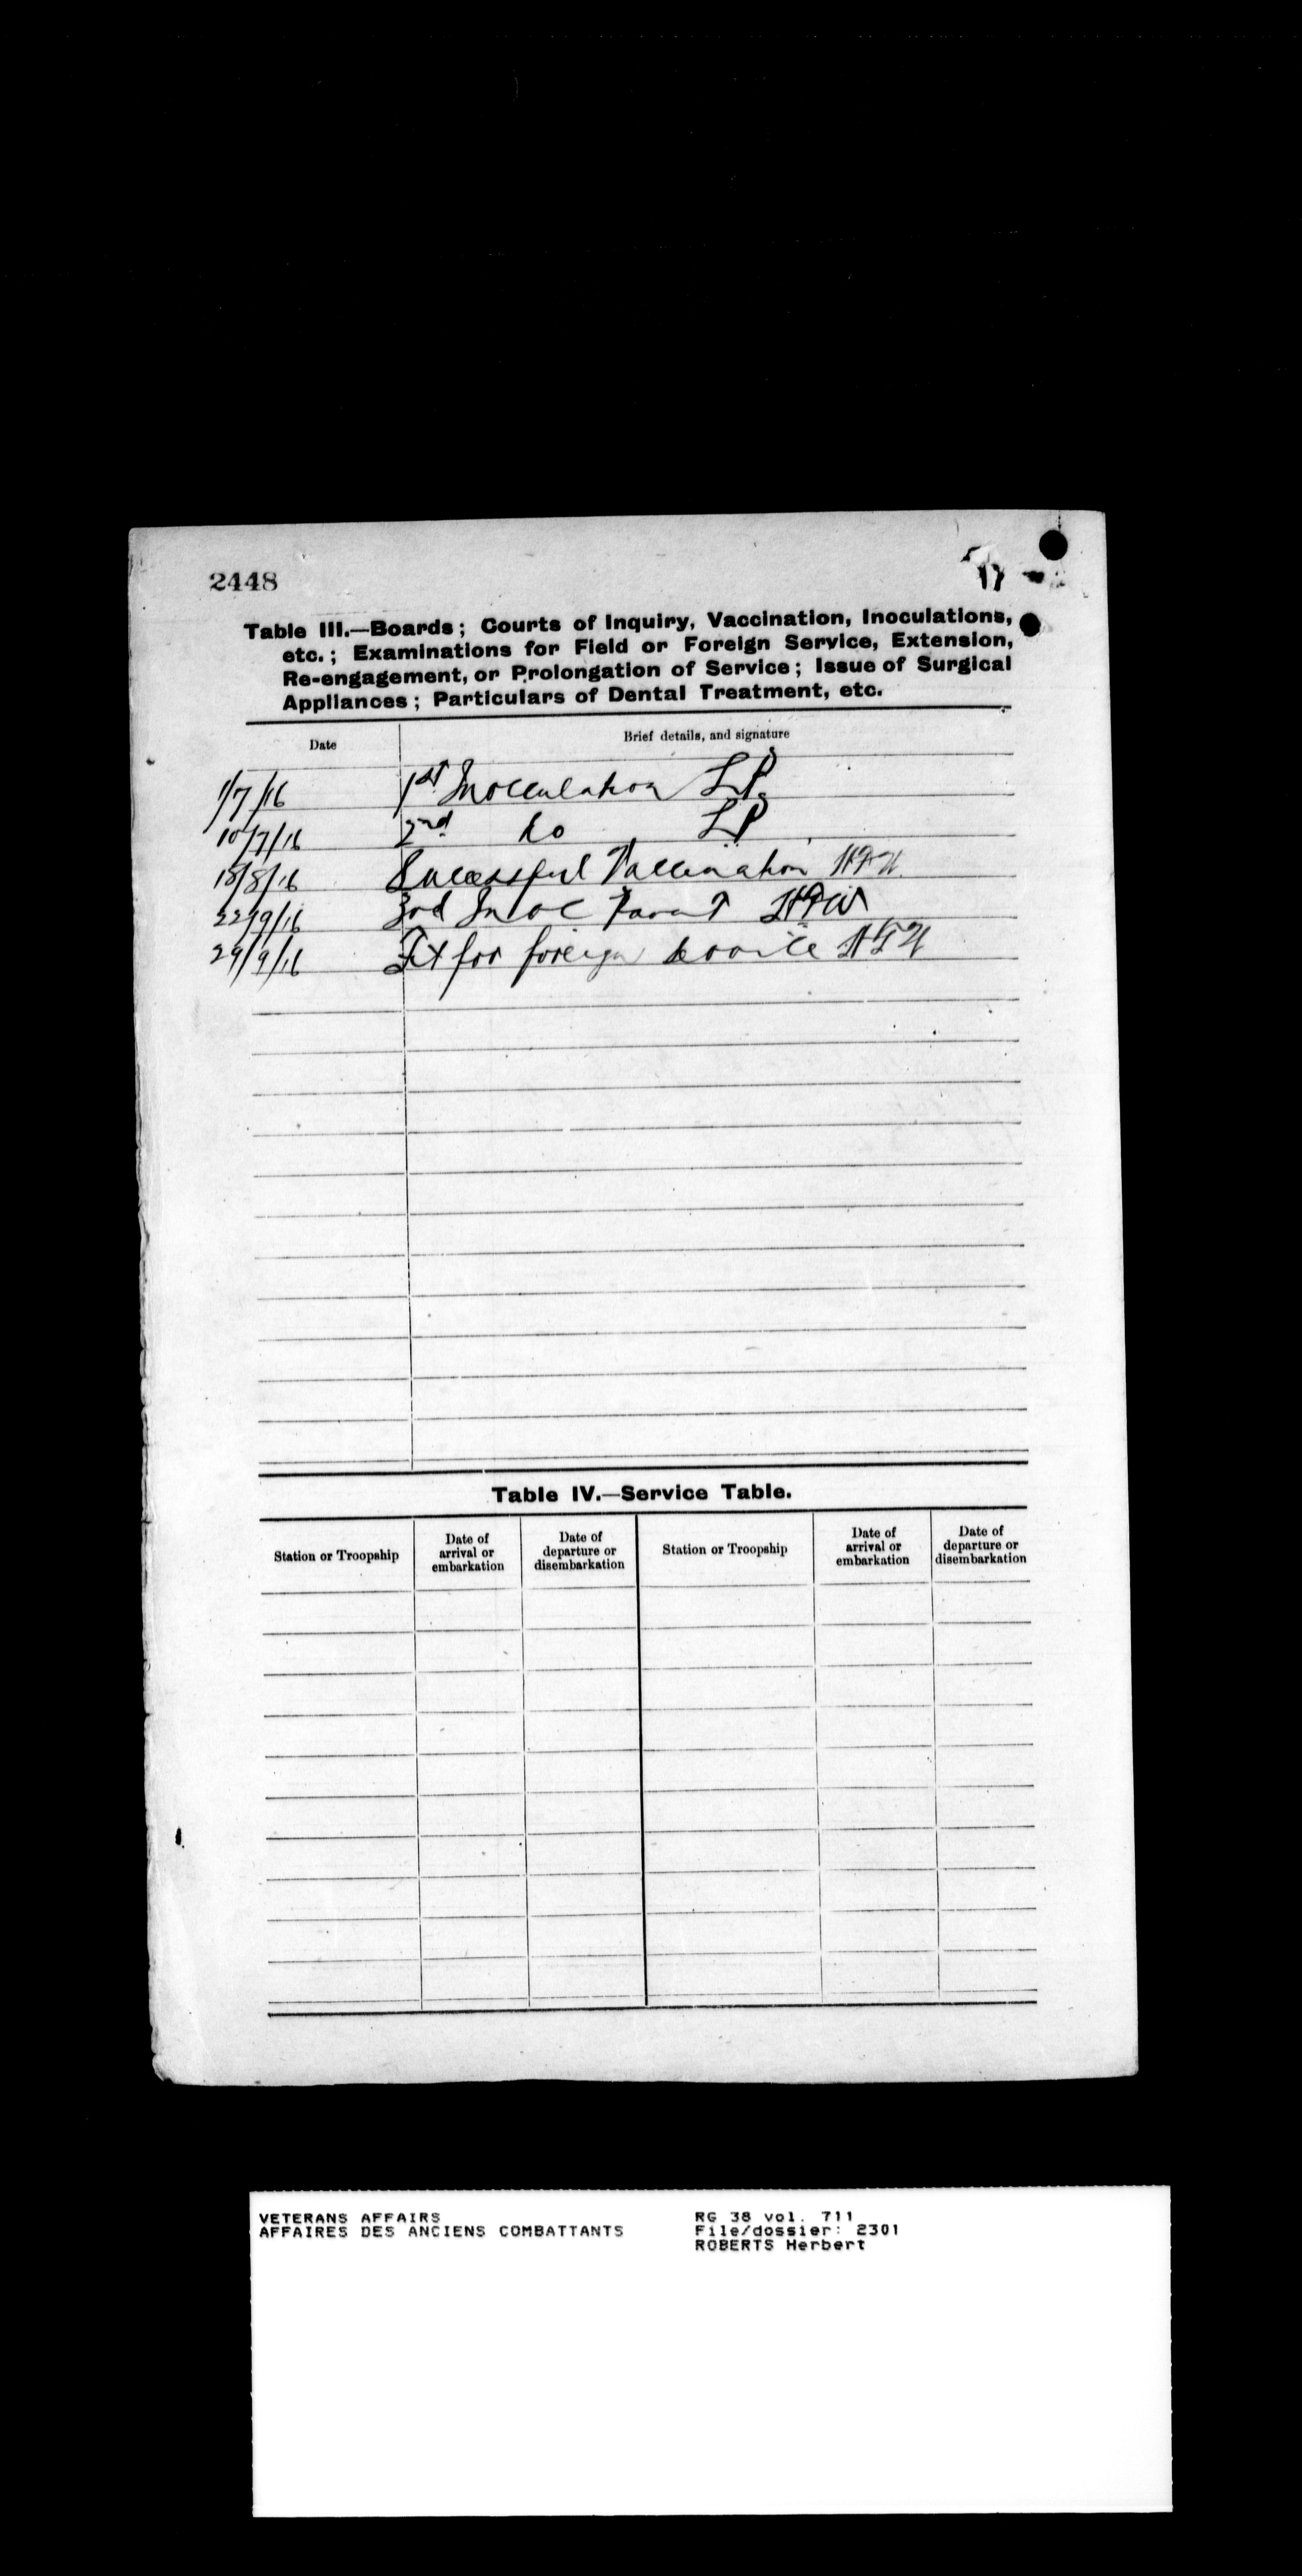 2448
17
Table III.—Boards; Courts of Inquiry, Vaccination, Inoculations,
etc.; Examinations for Field or Foreign Service, Extension,
Re-engagement, or Prolongation of Service; Issue of Surgical
Appliances; Particulars of Dental Treatment, etc.
Date Brief details, and signature
1/7/16 1st Inocculation L.P.
10/7/16 2nd do LP
18/8/16 Sucessful Vaccination
22/9/16 3rd Inoc
29/9/16 Fit for foreign service
Table IV.—Service Table.
Station or Troopship Date of arrival or embarkation Date of departure or disembarkation Station or Troopship Date of arrival or embarkation Date of departure or disembarkation
VETERANS AFFAIRS RG 38 vol. 711
AFFAIRES DES ANCIENS COMBATTANTS File/dossier: 2301
ROBERTS Herbert